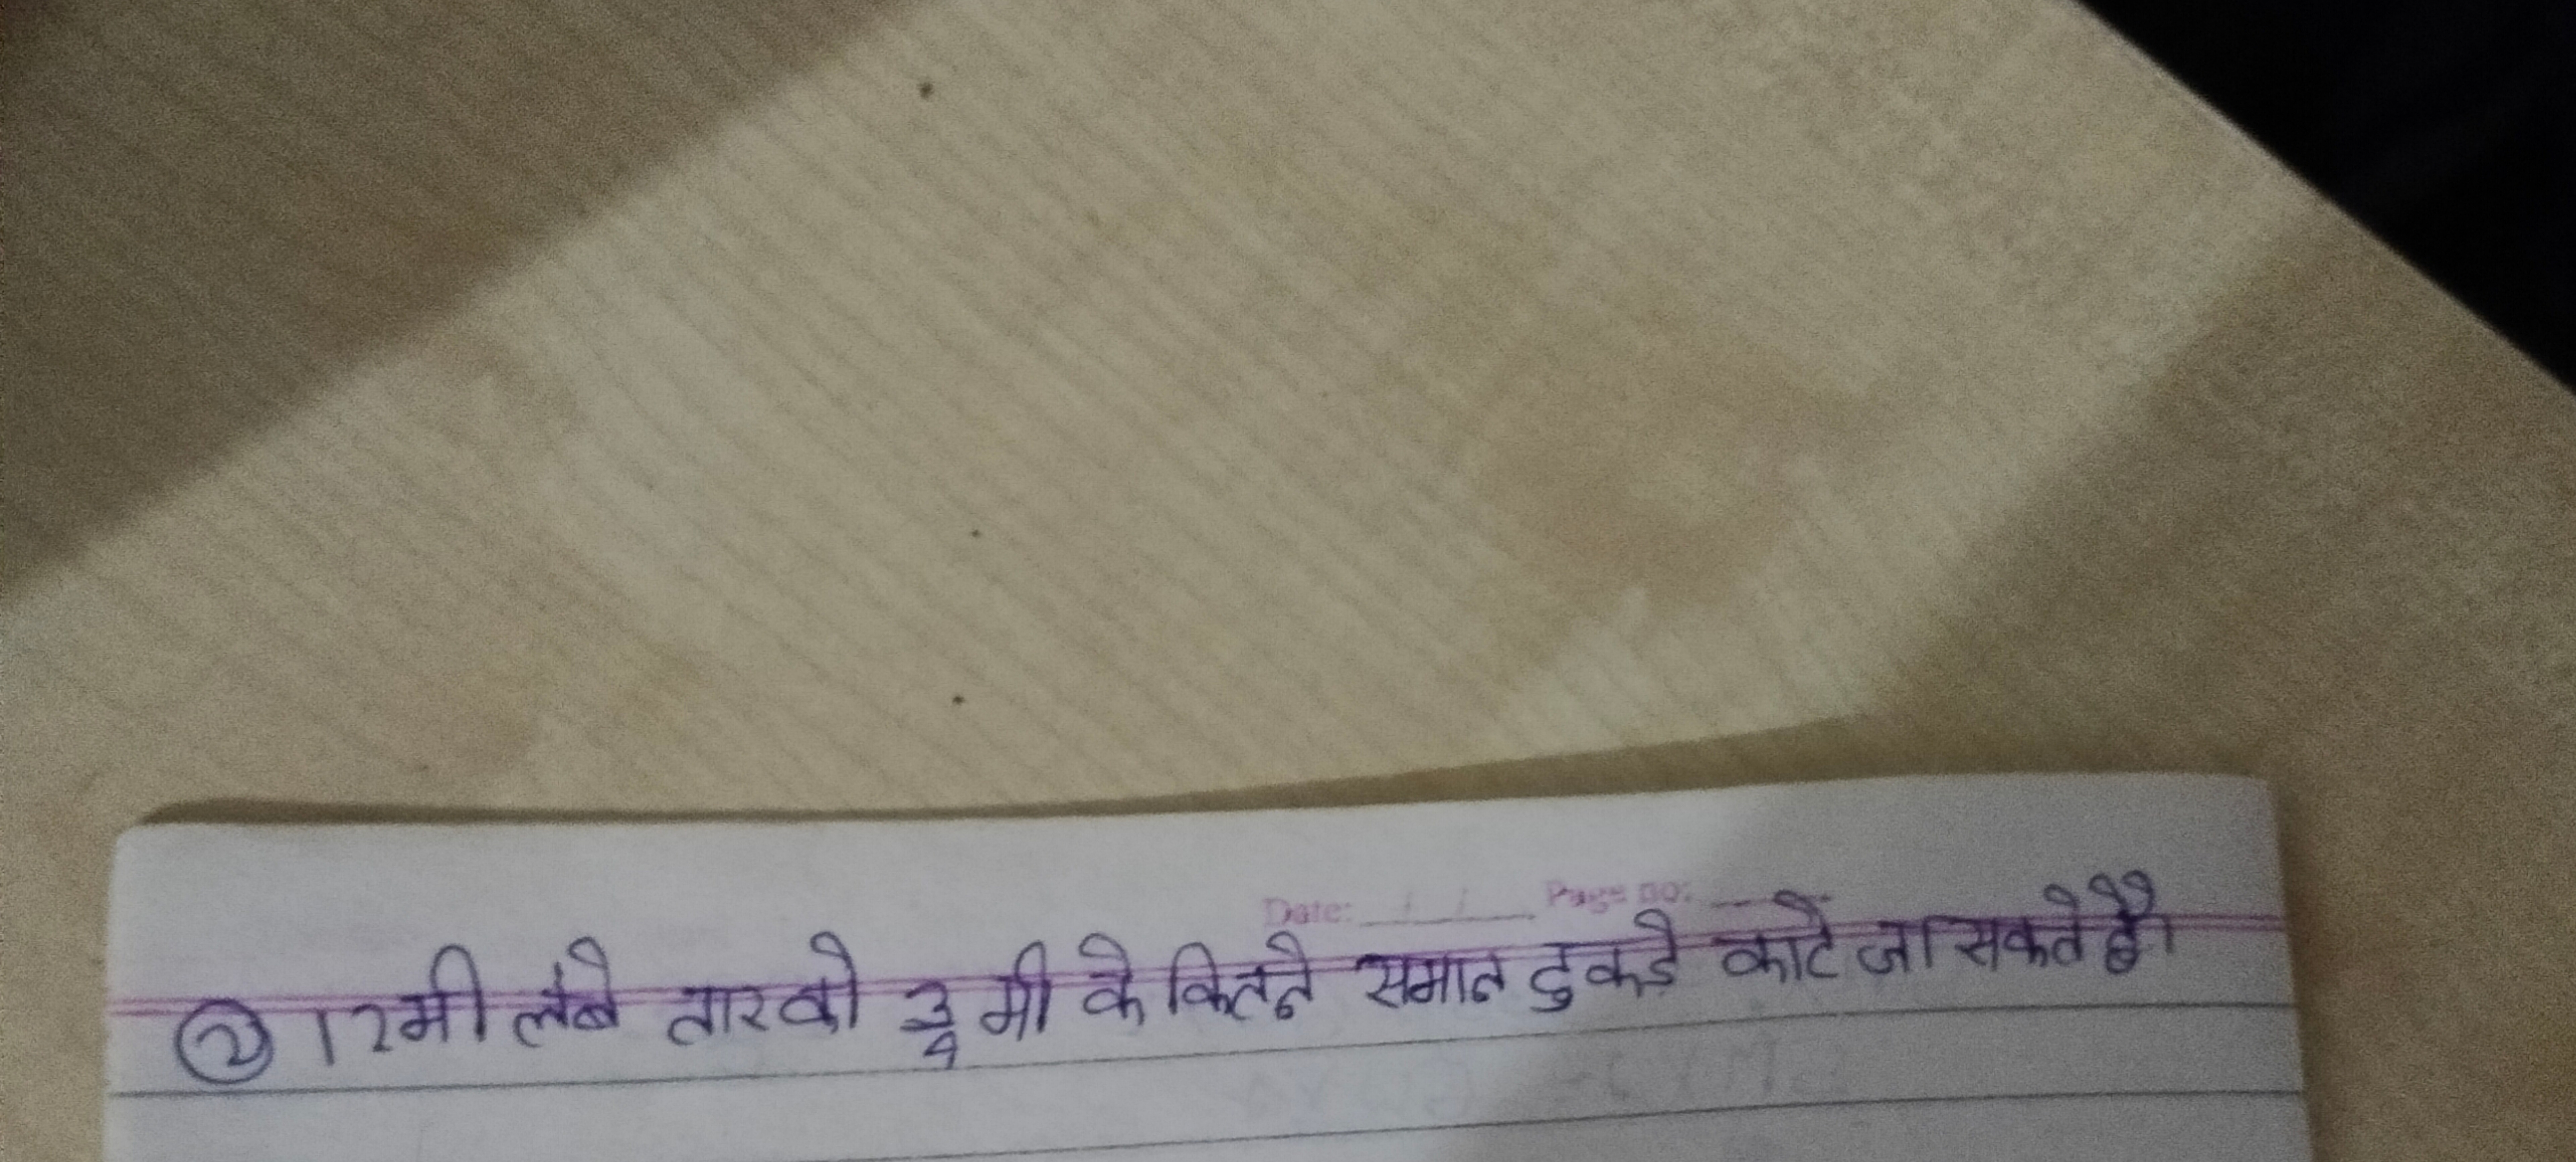 Date: __/__/__ Page no: __
② 12मी लंबे तारको 3/4 मी के कितने समान टुकडे काटे जा सकते है।